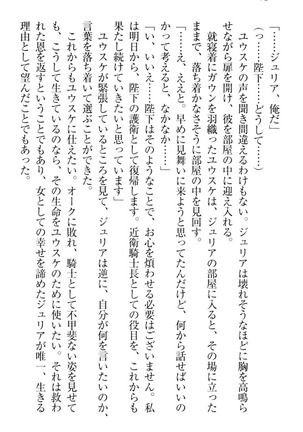 「……ジュリア、俺だ」
(……陛下……どうして……)
ユウスケの声を聞き間違えるわけもない。ジュリアは壊れそうなほどに胸を高鳴ら
せながら扉を開け、彼を部屋の中に迎え入れる。
就寝着にガウンを羽織ったユウスケは、ジュリアの部屋に入ると、その場に立った
ままで、落ち着かなさそうに部屋の中を見回す。
「……ええと。早めに見舞いに来ようと思ってたんだけど、何から話せばいいの
かって考えると、なかなか……」
「い、いいえ……陛下はそのようなことで、お心を煩わせる必要はございません。私
は明日から、陛下の護衛として復帰します。近衛騎士長としての役目を、これからも
果たし続けていきたいと思っています」
ユウスケが緊張しているところを見て、ジュリアは逆に、自分が何を言いたいのか、
言葉を落ち着いて選ぶことができた。
これからもユウスケに仕えたい。オークに敗れ、騎士として不甲斐ない姿を見せて
も、こうして生きているのなら、その生命をユウスケのために使いたい。それは救わ
れた恩を返すということでもあり、女としての幸せを諦めたジュリアが唯一、生きる
理由として望んだことでもあった。